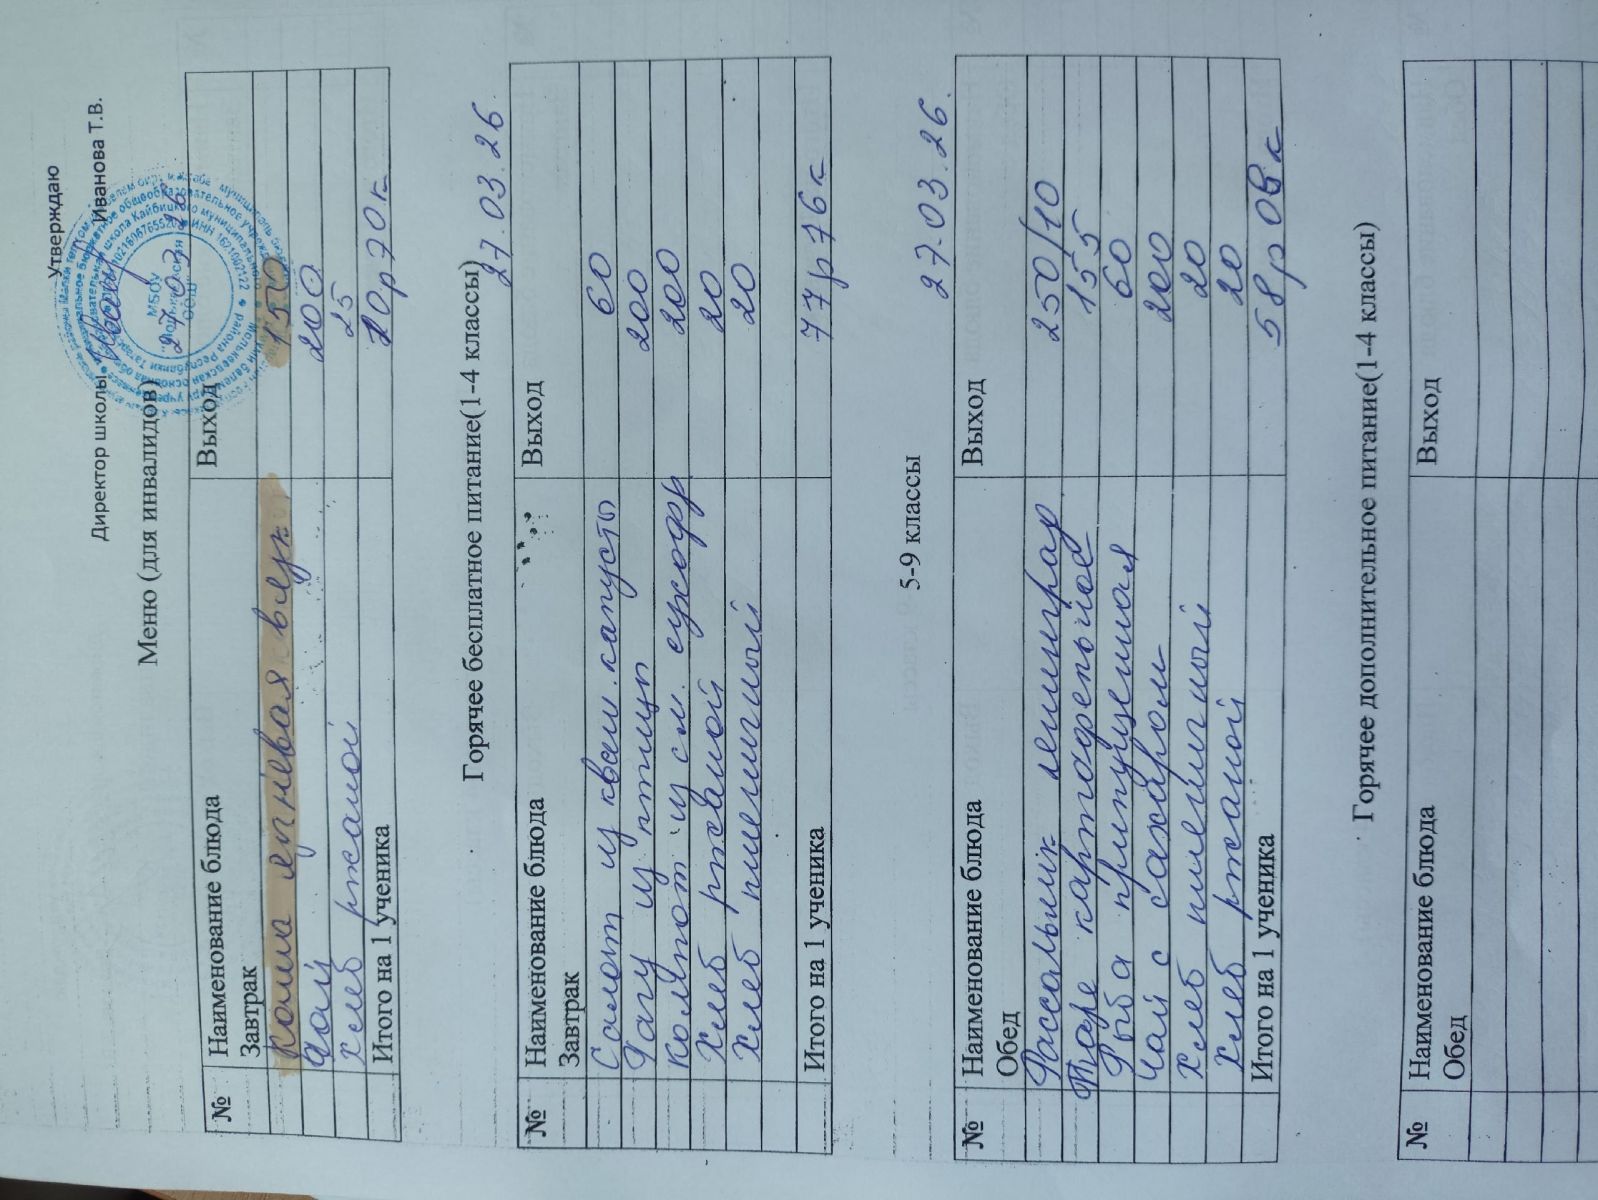 Утверждаю
Директор школы Иванова Т.В.
27.03.26
Меню (для инвалидов)
№ Наименование блюда Выход
Завтрак
Каша ячневая вязк 150
Чай 200
Хлеб ржаной 25
Итого на 1 ученика 20р70к
Горячее бесплатное питание(1-4 классы)
27.03.26
№ Наименование блюда Выход
Завтрак
Салат из кваш. капусты 60
Рагу из птицы 200
Компот из см. сухофр 200
Хлеб ржаной 20
Хлеб пшеничный 20
Итого на 1 ученика 77р76к
5-9 классы 27.03.26.
№ Наименование блюда Выход
Обед
Рассольник ленинград 250/10
Пюре картофельное 155
Рыба припущенная 60
Чай с сахаром 200
Хлеб пшеничный 20
Хлеб ржаной 20
Итого на 1 ученика 58р08к
Горячее дополнительное питание(1-4 классы)
№ Наименование блюда Выход
Обед